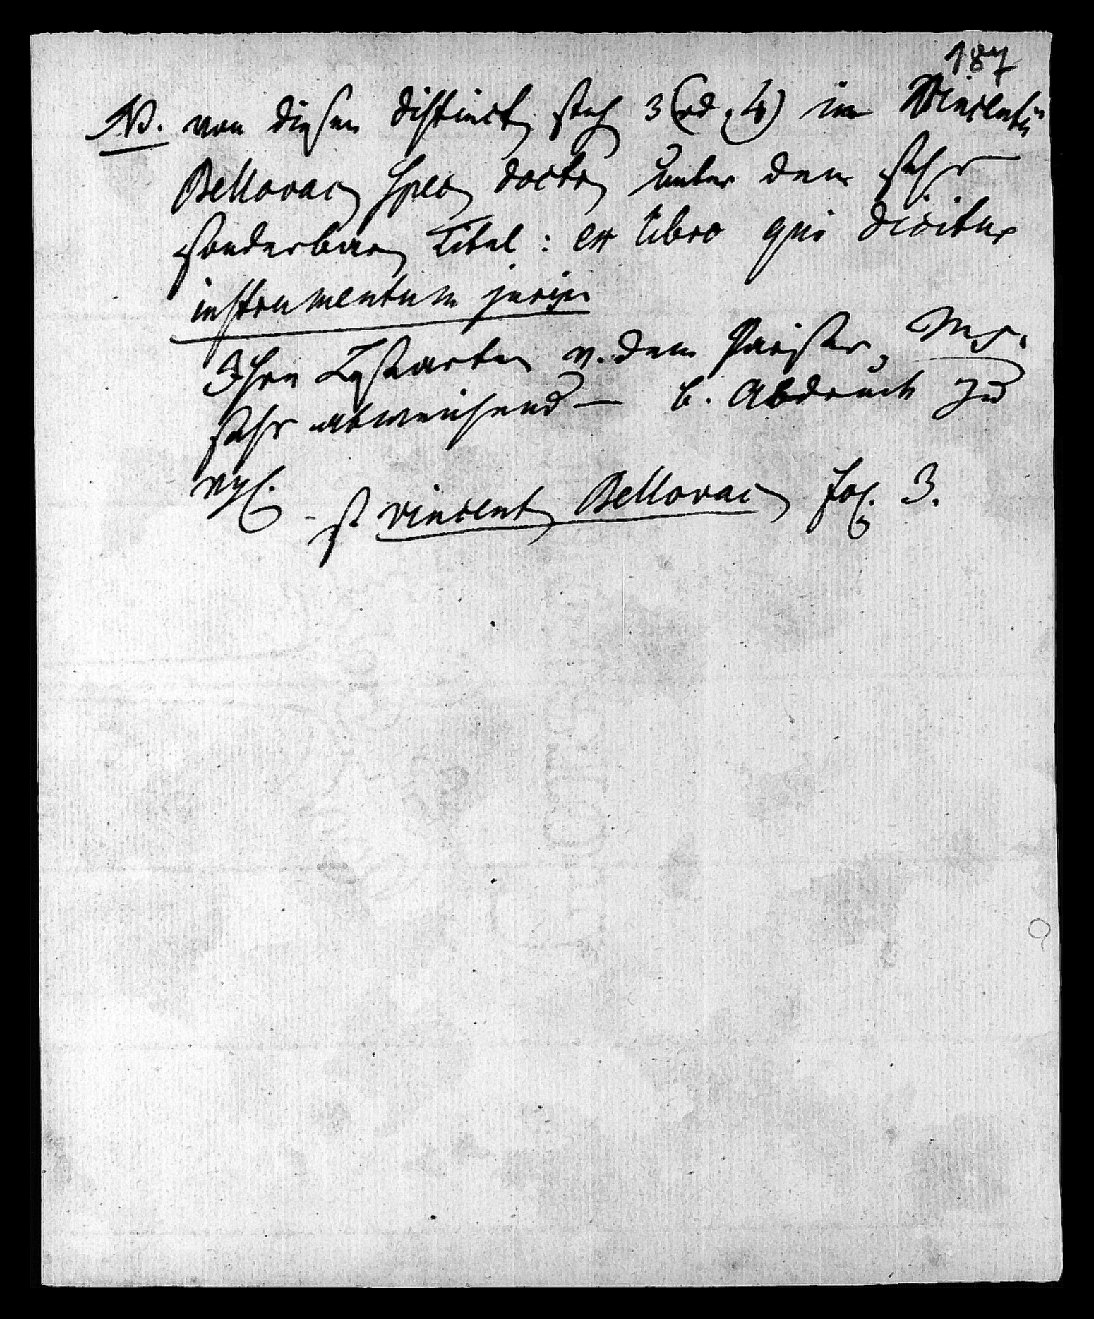 187
NB. von diesen distinct. steh 3 (od. 4) im Vincentiu
Bellovac. spec. doctr. unter dem sehr
sonderbaren Titel: ex libro qui dicitur
instrumentum juris
Ihre Lesarten v. dem Pariser Ms.
sehr abweichend — b. Abdruck zu
vgl. - s. Vincent. Bellovac. fol. 3.